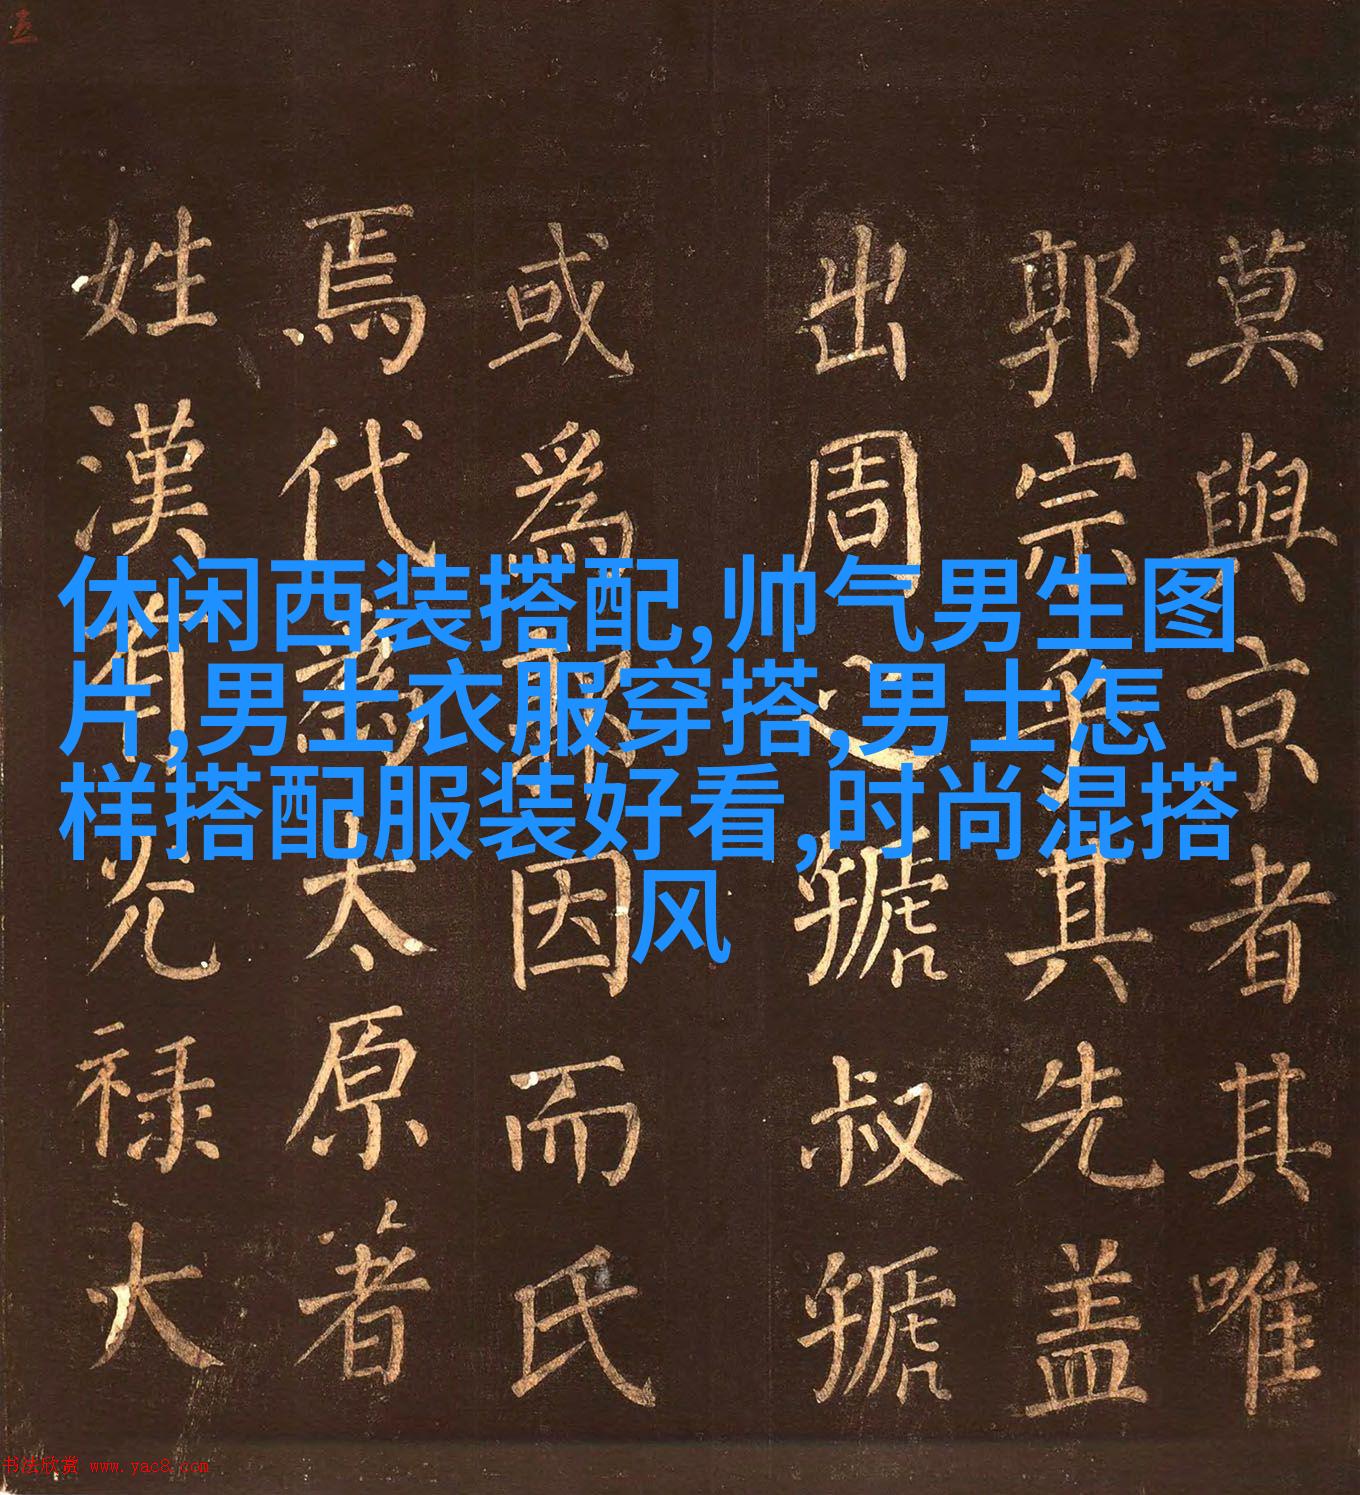 莫與京者其唯
郭宗乎其先盖
出周之虢叔虢
或爲郭因而氏
焉代爲太原著
姓漢有光禄大
休闲西装搭配,帅气男生图
片,男士衣服穿搭,男士怎
样搭配服装好看,时尚混搭
风
书法欣赏 www.yac8.com